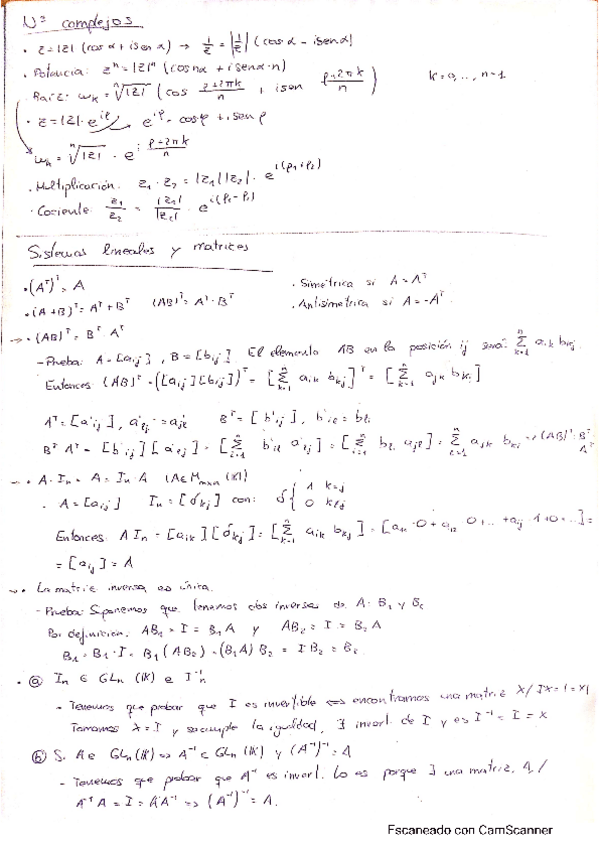 Nº complejos
· z = |z| (cos α + i sen α) → 1/z = |1/z| (cos α - i sen α)
· Potencia: zⁿ = |z|ⁿ (cos nα + i sen α·n)
· Raíz: ωₖ = ⁿ√|z| (cos (φ+2πk)/n + i sen (φ+2πk)/n) k = 0, ..., n-1
· z = |z| · e^{iφ} e^{iφ} = cos φ + i sen φ
ωₖ = ⁿ√|z| · e^{i (φ+2πk)/n}
· Multiplicación: z₁ · z₂ = |z₁| |z₂| · e^{i(φ₁+φ₂)}
· Cociente: z₁/z₂ = |z₁|/|z₂| · e^{i(φ₁-φ₂)}
Sistemas lineales y matrices
· (Aᵀ)ᵀ = A · Simétrica si A = Aᵀ
· (A+B)ᵀ = Aᵀ + Bᵀ (AB)ᵀ = Aᵀ · Bᵀ · Antisimétrica si A = -Aᵀ
→ · (AB)ᵀ = Bᵀ Aᵀ
- Prueba: A = [aᵢⱼ], B = [bᵢⱼ]. El elemento AB en la posición ij será: Σₖ₌₁ⁿ aᵢₖ bₖⱼ
Entonces (AB)ᵀ = ([aᵢⱼ][bᵢⱼ])ᵀ = [Σₖ₌₁ⁿ aᵢₖ bₖⱼ]ᵀ = [Σₖ₌₁ⁿ aⱼₖ bₖᵢ]
Aᵀ = [a'ᵢⱼ], B = [b'ᵢⱼ],
Bᵀ Aᵀ = [b'ᵢⱼ][a'ᵢⱼ] = (AB)ᵀ = Bᵀ Aᵀ
→ · A · Iₙ = A = Iₙ · A (A ∈ Mₘₓₙ (K))
· A = [aᵢⱼ] Iₙ = [δₖⱼ] con: δ { 1 k=j
0 k≠j
Entonces A Iₙ = [aᵢₖ][δₖⱼ] = [Σₖ₌₁ⁿ aᵢₖ bₖⱼ] = [aᵢ₁ · 0 + aᵢ₂ · 0 + ... + aᵢⱼ · 1 + 0 + ...] =
= [aᵢⱼ] = A
→ · La matriz inversa es única.
- Prueba: Suponemos que tenemos dos inversas de A: B₁ y B₂
Por definición: AB₁ = I = B₁A y AB₂ = I = B₂A
B₁ = B₁ · I = B₁ (AB₂) = (B₁A) B₂ = I B₂ = B₂
· ⓐ Iₙ ∈ GLₙ (K) e I⁻¹ₙ
- Tenemos que probar que I es invertible ⇔ encontramos una matriz X / IX = I = XI
Tomamos X = I y se cumple la igualdad, ∃ invert. de I y es I⁻¹ = I = X
ⓑ Si A ∈ GLₙ(K) ⇒ A⁻¹ ∈ GLₙ (K) y (A⁻¹)⁻¹ = A
- Tenemos que probar que A⁻¹ es invert. Lo es porque ∃ una matriz, A /
A⁻¹ A = I = A A⁻¹ ⇒ (A⁻¹)⁻¹ = A.
Escaneado con CamScanner